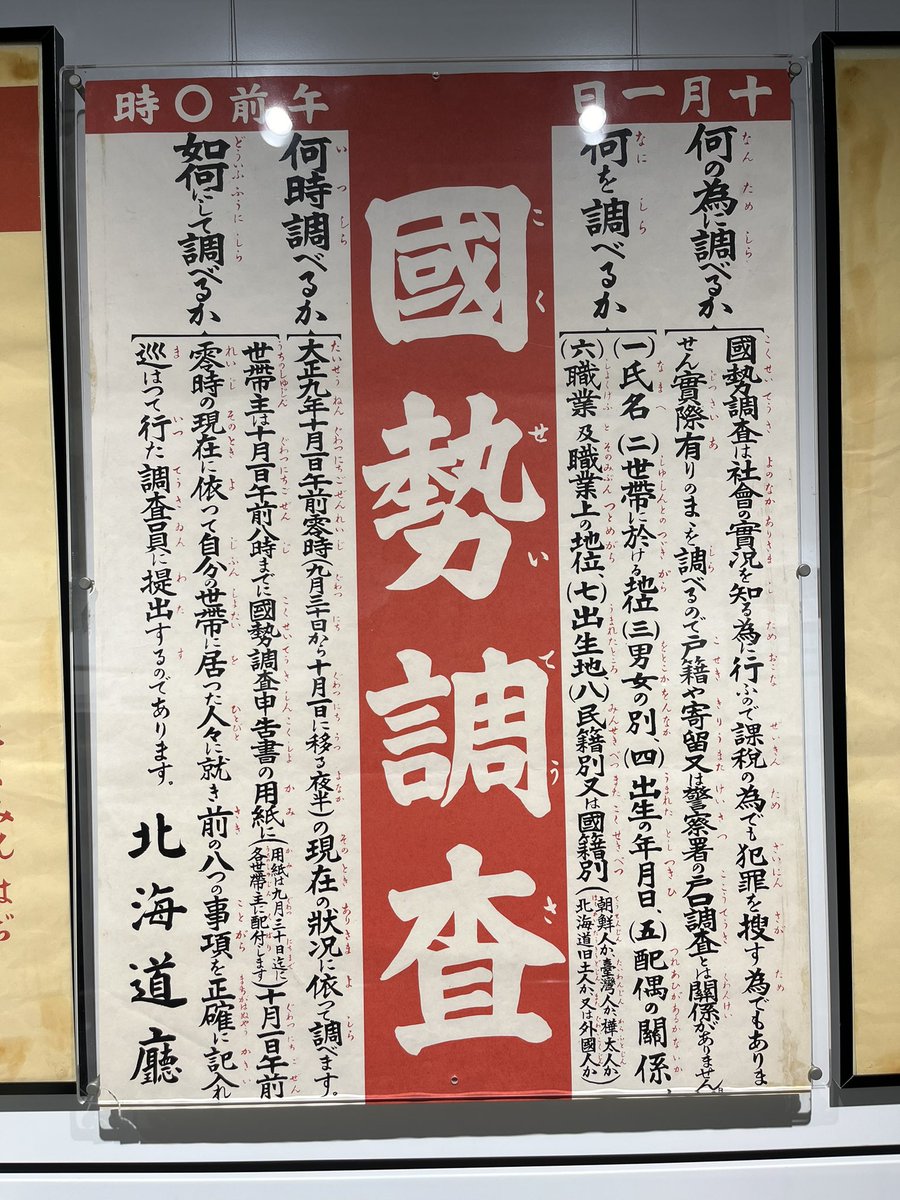 十月一日
午前〇時
何の為に調べるか
國勢調査は社會の實况を知る為に行ふので課税の為でも犯罪を搜す為でもありま
せん實際有りのまゝを調べるので戸籍や寄留又は警察署の戸口調査とは關係がありません。
何を調べるか
(一)氏名(二)世帯に於ける地位(三)男女の別、(四)出生の年月日、(五)配偶の關係、
(六)職業及職業上の地位、(七)出生地、(八)民籍別又は國籍別(朝鮮人か、臺灣人か、樺太人か
北海道旧土人か、又は外國人か)
國勢調査
こくせいてうさ
何時調べるか
大正九年十月一日午前零時(九月三十日から十月一日に移る夜半)の現在の狀況に依って調べます。
如何にして調べるか
世帯主は十月一日午前八時までに國勢調査申告書の用紙に(用紙は九月三十日迄に
各世帯主に配付します)十月一日午前
零時の現在に依って自分の世帯に居つた人々に就き前の八つの事項を正確に記入れ
巡はつて行た調査員に提出するのであります。
北海道廳